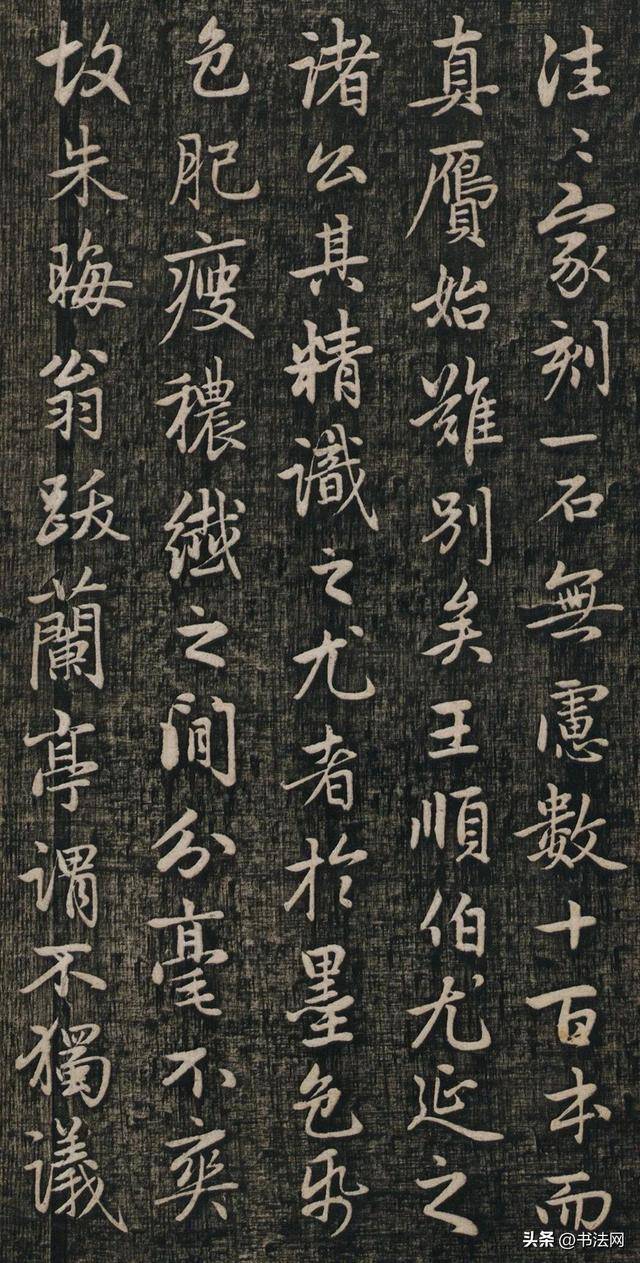 往〻家刻一石無慮數十百本而
真贗始難別矣王順伯尤延之
諸公其精識之尤者於墨色帋
色肥瘦穠纖之間分毫不爽
故朱晦翁跋蘭亭謂不獨議
头条 @书法网